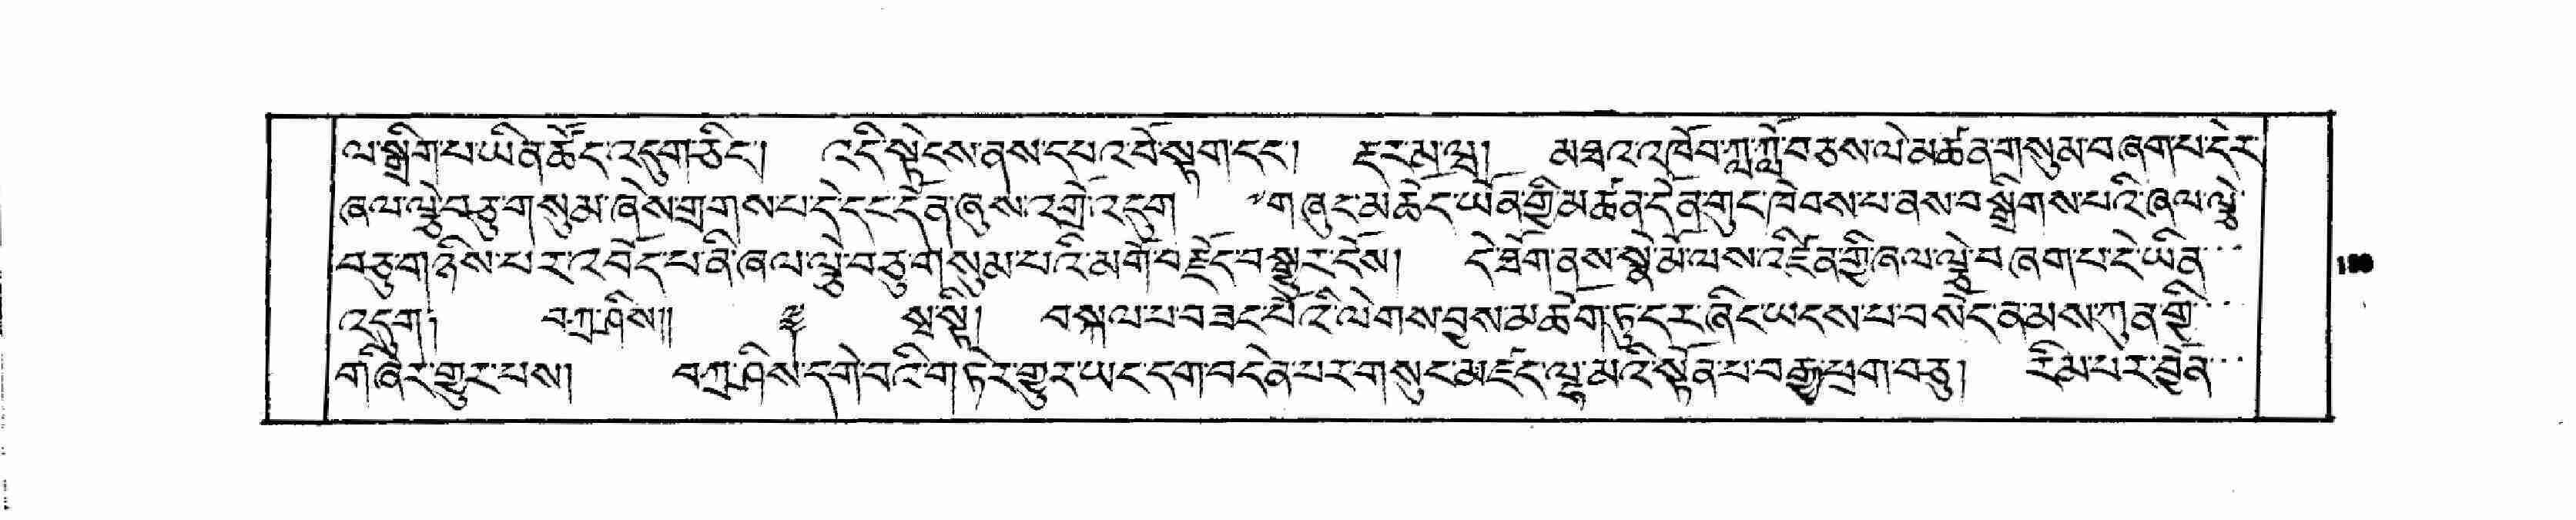 ལ་སྒྲིག་པ་ཡིན་ཆོང་འདུག་ཅིང་། འདི་སྟེངས་ནས་དཔའ་བོ་སྟག་དང་། རྔར་མ་ལྤྲ། མཐའ་འཁོབ་ཀླ་ཀློ་བཅས་ལེ་མཚན་གསུམ་བཞག་པ་དེར་
ཞལ་ལྕེ་བཅུ་གསུམ་ཞེས་གྲགས་པ་དེ་དང་དོན་ཞུས་འགྲོ་འདུག གཞུང་མཆོད་ཡོན་གྱི་མཚན་དོན་གུང་ཁེབས་པ་ནས་བསྒྲིགས་པའི་ཞལ་ལྕེ་
བཅུ་གཉིས་པར་འབོད་པ་ནི་ཞལ་ལྕེ་བཅུ་གསུམ་པའི་མགོ་བརྗེད་བསྒྱུར་ངོས། དེ་ཐོག་ནས་སྣེ་མོ་ལས་འཛིན་གྱི་ཞལ་ལྕེ་བཞག་པ་དེ་ཡིན་
འདུག། བཀྲ་ཤིས།། ༈ སྭསྟི། བསྐལ་པ་བཟང་པོའི་ལེགས་བྱས་མཆོག་ཏུ་དར་ཞིང་ཡངས་པ་བསོད་ནམས་ཀུན་གྱི་
གཞིར་གྱུར་པས། བཀྲ་ཤིས་དགེ་བའི་གཏེར་གྱུར་ཡང་དག་བདེན་པར་གསུང་མཛད་ལྷ་མའི་སྟོན་པ་བརྒྱ་ཕྲག་བཅུ། རིམ་པར་བྱོན་